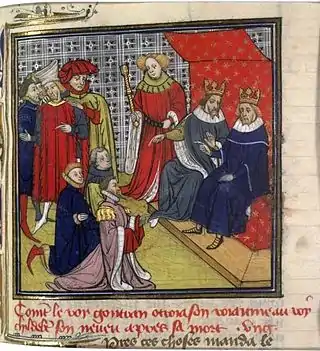 Com̃t le roy gontran otroia son roiaume au roy
childebt son neueu apres sa mort . vng .
Pres ces choses manda le